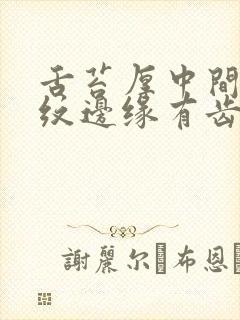 舌苔厚中間
纹邊缘有齿
謝麗尔·布恩